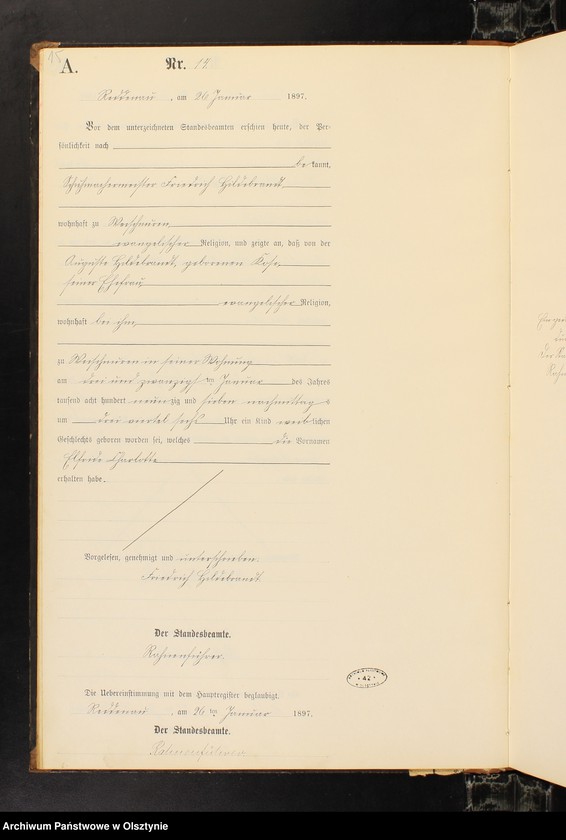 A.
Nr. 14.
Reddenau, am 26 Januar 1897.
Vor dem unterzeichneten Standesbeamten erschien heute, der Per-
sönlichkeit nach
bekannt,
Schuhmachermeister Friedrich Hildebrandt
wohnhaft zu
evangelischer Religion, und zeigte an, daß von der
Auguste Hildebrandt, geborenen
seiner Ehefrau
evangelischer Religion,
wohnhaft bei ihm,
zu in seiner Wohnung
am drei und zwanzigsten Januar des Jahres
tausend acht hundert neunzig und sieben nachmittags
um drei viertel sechs Uhr ein Kind weiblichen
Geschlechts geboren worden sei, welches die Vornamen
Elfriede Charlotte
erhalten habe.
Vorgelesen, genehmigt und unterschrieben.
Friedrich Hildebrandt
Der Standesbeamte.
Rahnenführer.
Die Uebereinstimmung mit dem Hauptregister beglaubigt.
Reddenau, am 26 ten Januar 1897.
Der Standesbeamte.
Rahnenführer
42
Archiwum Państwowe w Olsztynie